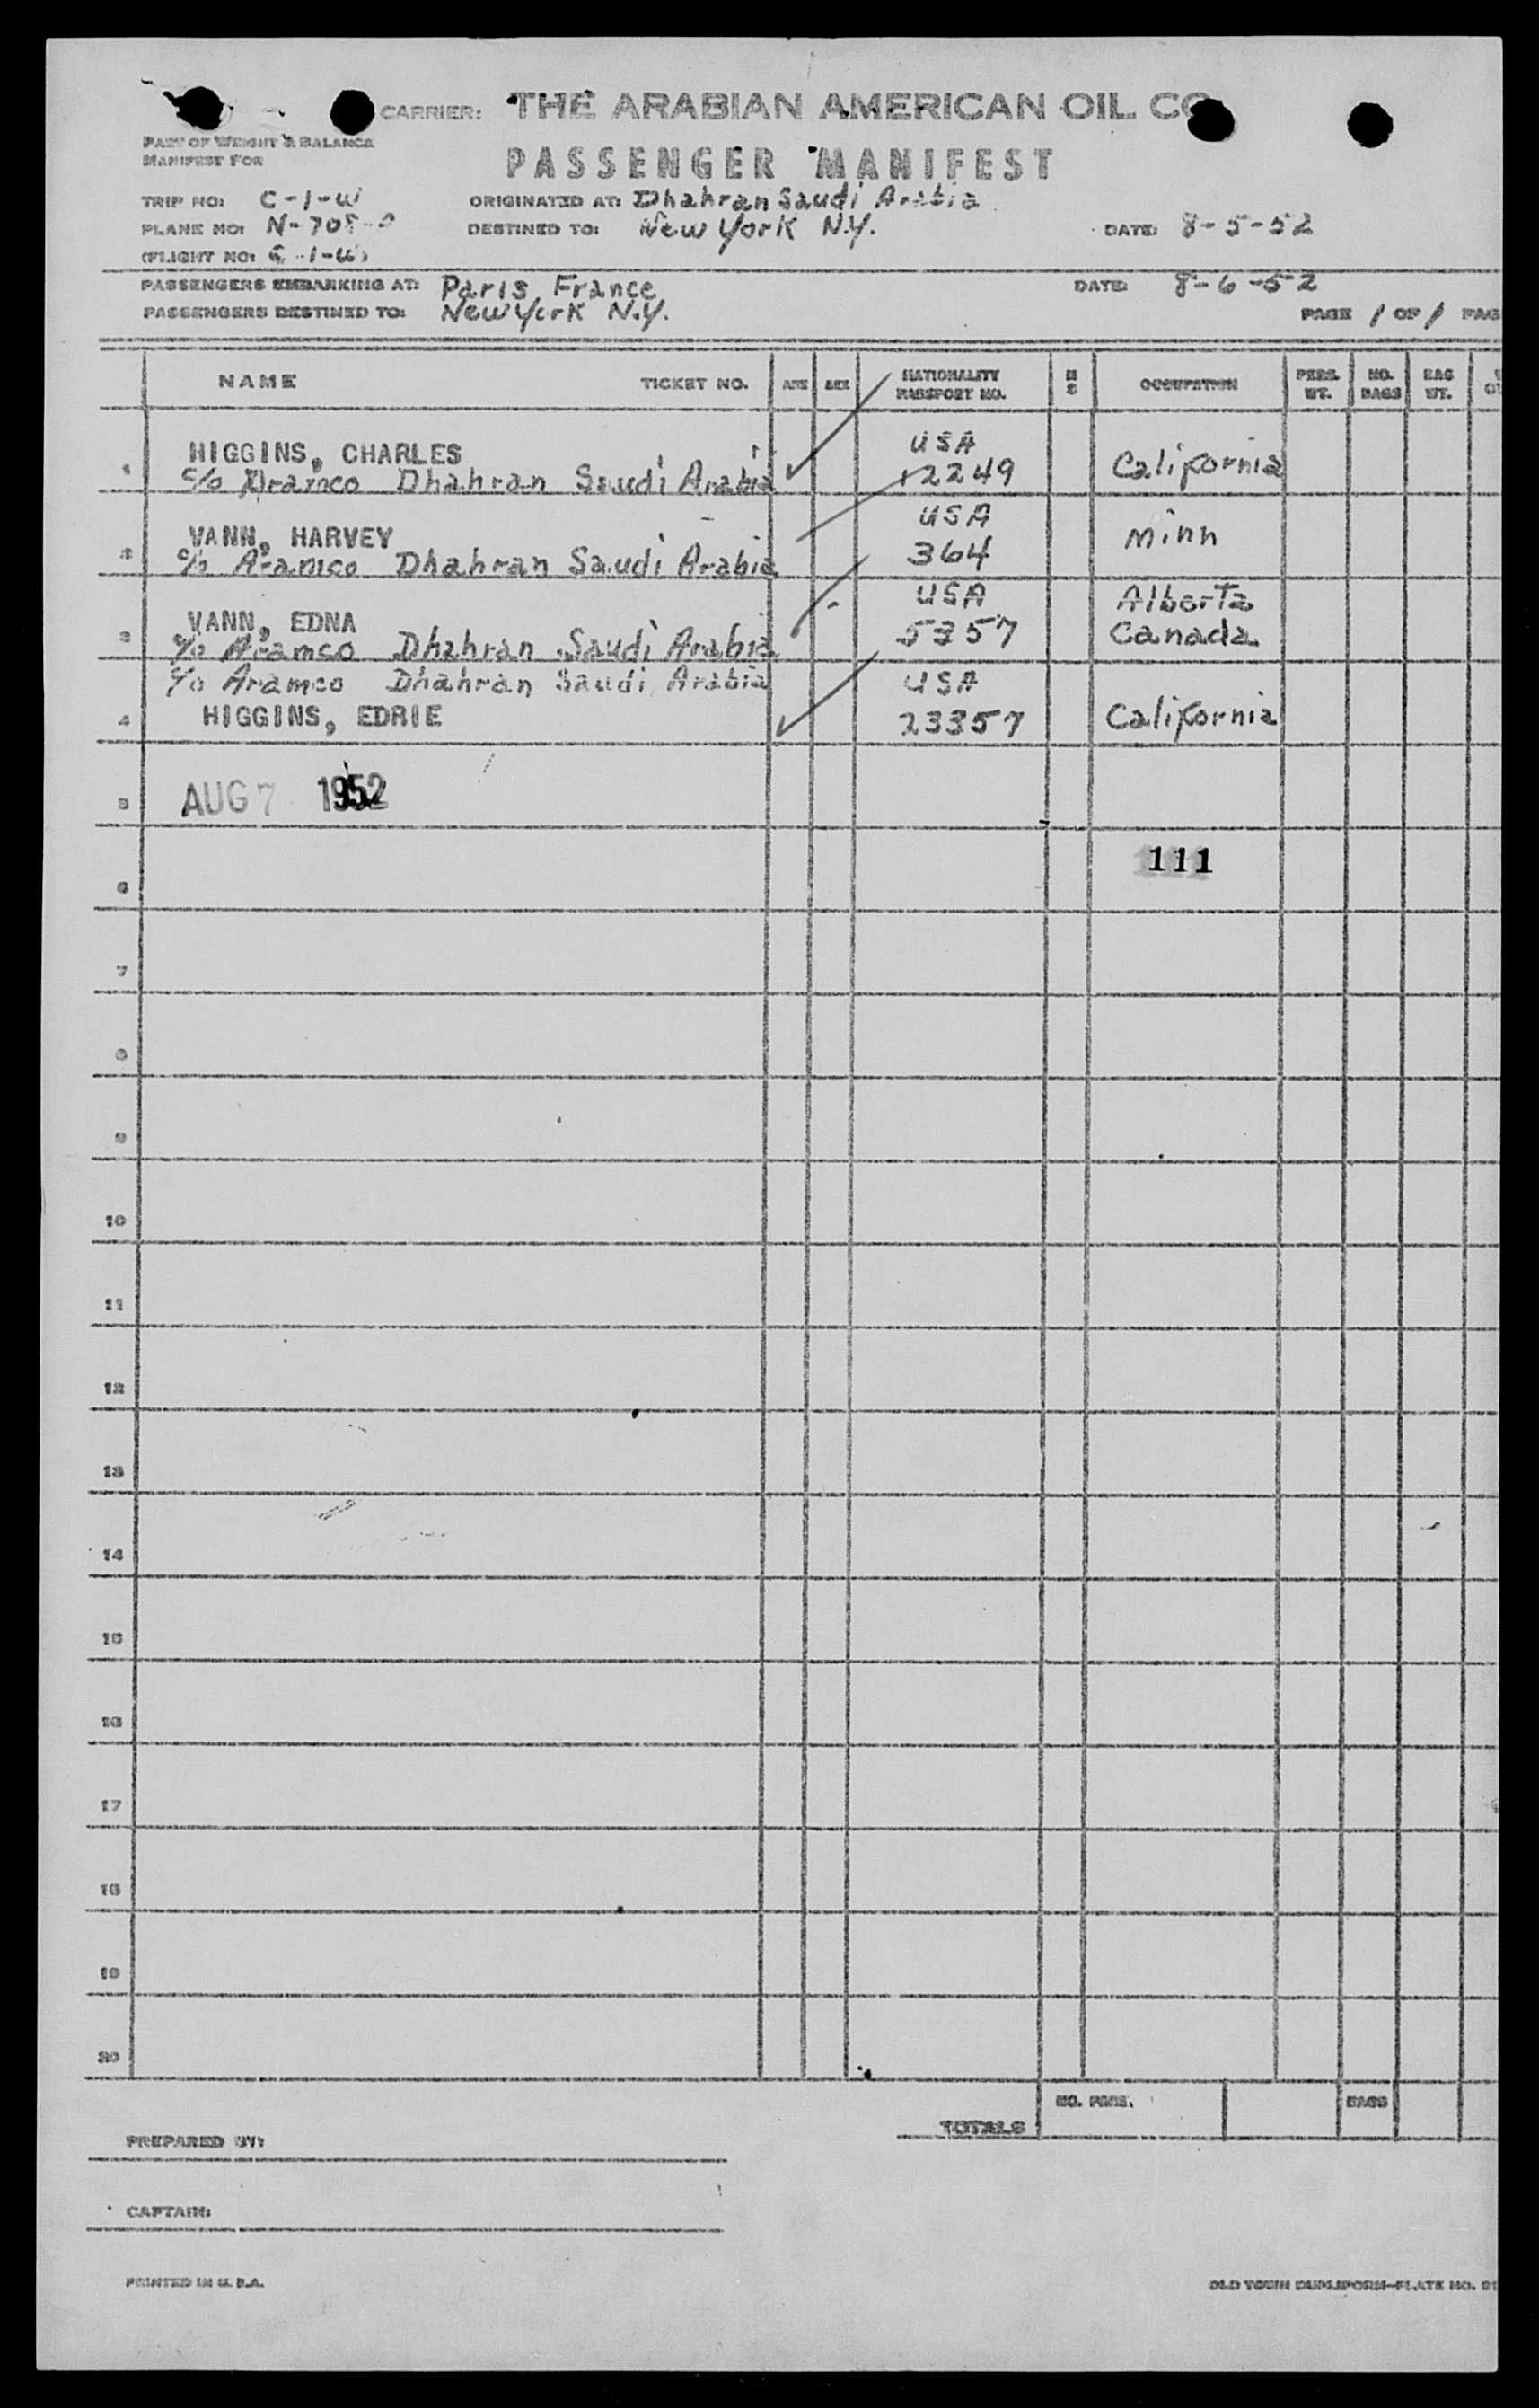 CARRIER: THE ARABIAN AMERICAN OIL CO
PART OF WEIGHT & BALANCE
MANIFEST FOR
PASSENGER MANIFEST
TRIP NO: C-1-W ORIGINATED AT: Dhahran Saudi Arabia
PLANE NO: DESTINED TO: New York N.Y. DATE: 8-5-52
(FLIGHT NO: C-1-W)
PASSENGERS EMBARKING AT: Paris France DATE: 8-6-52
PASSENGERS DESTINED TO: New York N.Y. PAGE 1 OF 1 PAG
NAME TICKET NO. AGE SEX NATIONALITY PASSPORT NO. M S OCCUPATION PERS. WT. NO. BAGS BAG WT.
HIGGINS, CHARLES USA
1 c/o Aramco Dhahran Saudi Arabia 12249 California
VANN, HARVEY USA
2 c/o Aramco Dhahran Saudi Arabia 364 Minn
VANN, EDNA USA Alberta
3 c/o Aramco Dhahran Saudi Arabia 5357 Canada
c/o Aramco Dhahran Saudi Arabia USA
4 HIGGINS, EDRIE 23357 California
5 AUG 7 1952
6 111
7
8
9
10
11
12
13
14
15
16
17
18
19
20
TOTALS NO. PASS. BAGS
PREPARED BY:
CAPTAIN:
PRINTED IN U.S.A. OLD TOWN DUPLIFORM-PLATE NO.